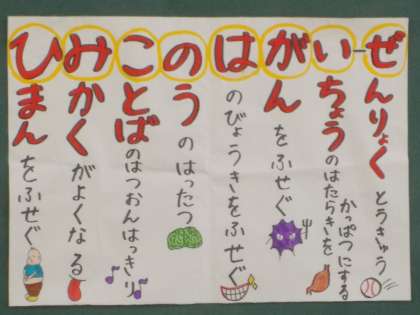 ひまんをふせぐ
みかくがよくなる
ことばのはつおんはっきり
のうのはったつ
はのびょうきをふせぐ
がんをふせぐ
いちょうのはたらきを
かっぱつにする
ぜんりょくとうきゅう